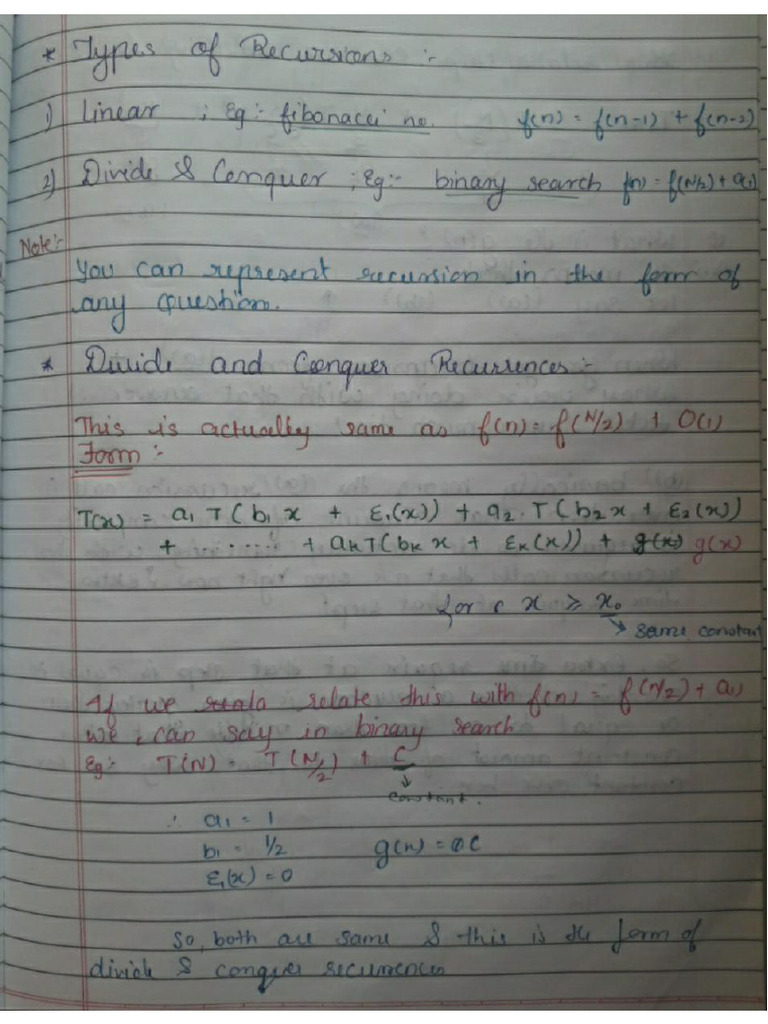 * Types of Recursions :-
1) Linear ; Eg :- fibonacci no. f(n) = f(n-1) + f(n-2)
2) Divide & Conquer ; Eg :- binary search f(n) = f(N/2) + O(1)
Note :-
You can represent recursion in the form of
any question.
* Divide and Conquer Recurrences :-
This is actually same as f(n) = f(N/2) + O(1)
Form :-
T(x) = a₁ T(b₁ x + ε₁(x)) + a₂ . T(b₂x + ε₂(x))
+ ..... + aₖT(bₖ x + εₖ(x)) + g(x)
for x ≥ x₀
→ some constant
If we relate this with f(n) = f(N/2) + O(1)
we can say in binary search
Eg :- T(N) = T(N/2) + C
↓
constant.
∴ a₁ = 1
b₁ = 1/2 g(n) = C
ε₁(x) = 0
So, both are same & this is the form of
divide & conquer recurrences